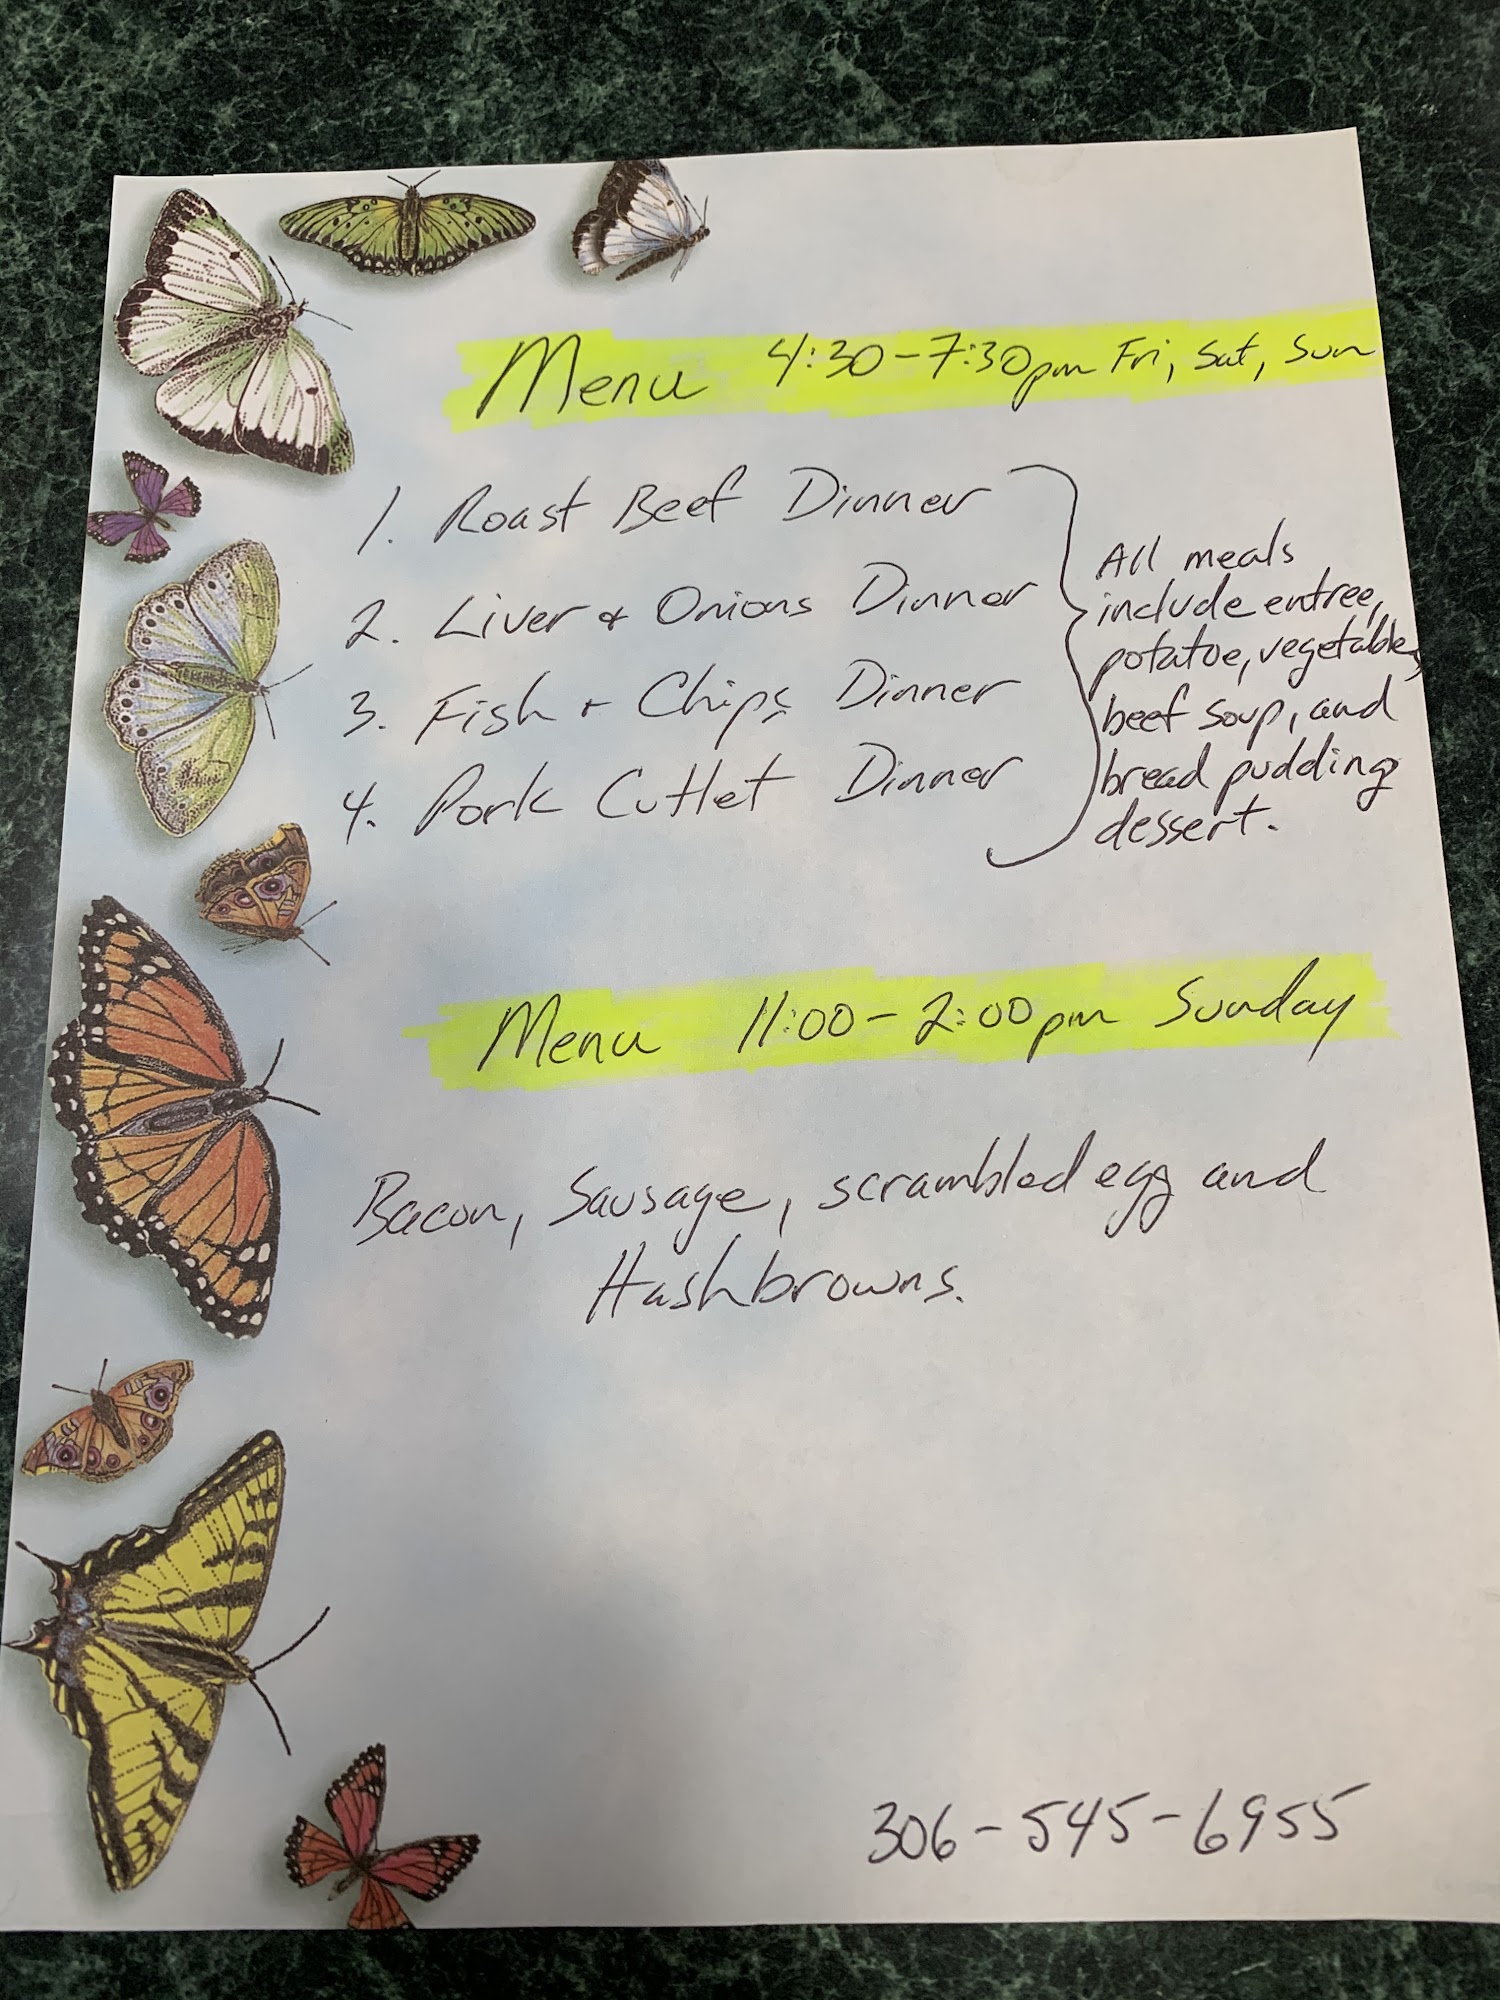 Menu 4:30-7:30pm Fri, Sat, Sun
1. Roast Beef Dinner
2. Liver & Onions Dinner
3. Fish + Chips Dinner
4. Pork Cutlet Dinner
All meals
include entree,
potatoe, vegetable,
beef soup, and
bread pudding
dessert.
Menu 11:00-2:00pm Sunday
Bacon, Sausage, scrambled egg and
Hashbrowns.
306-545-6955